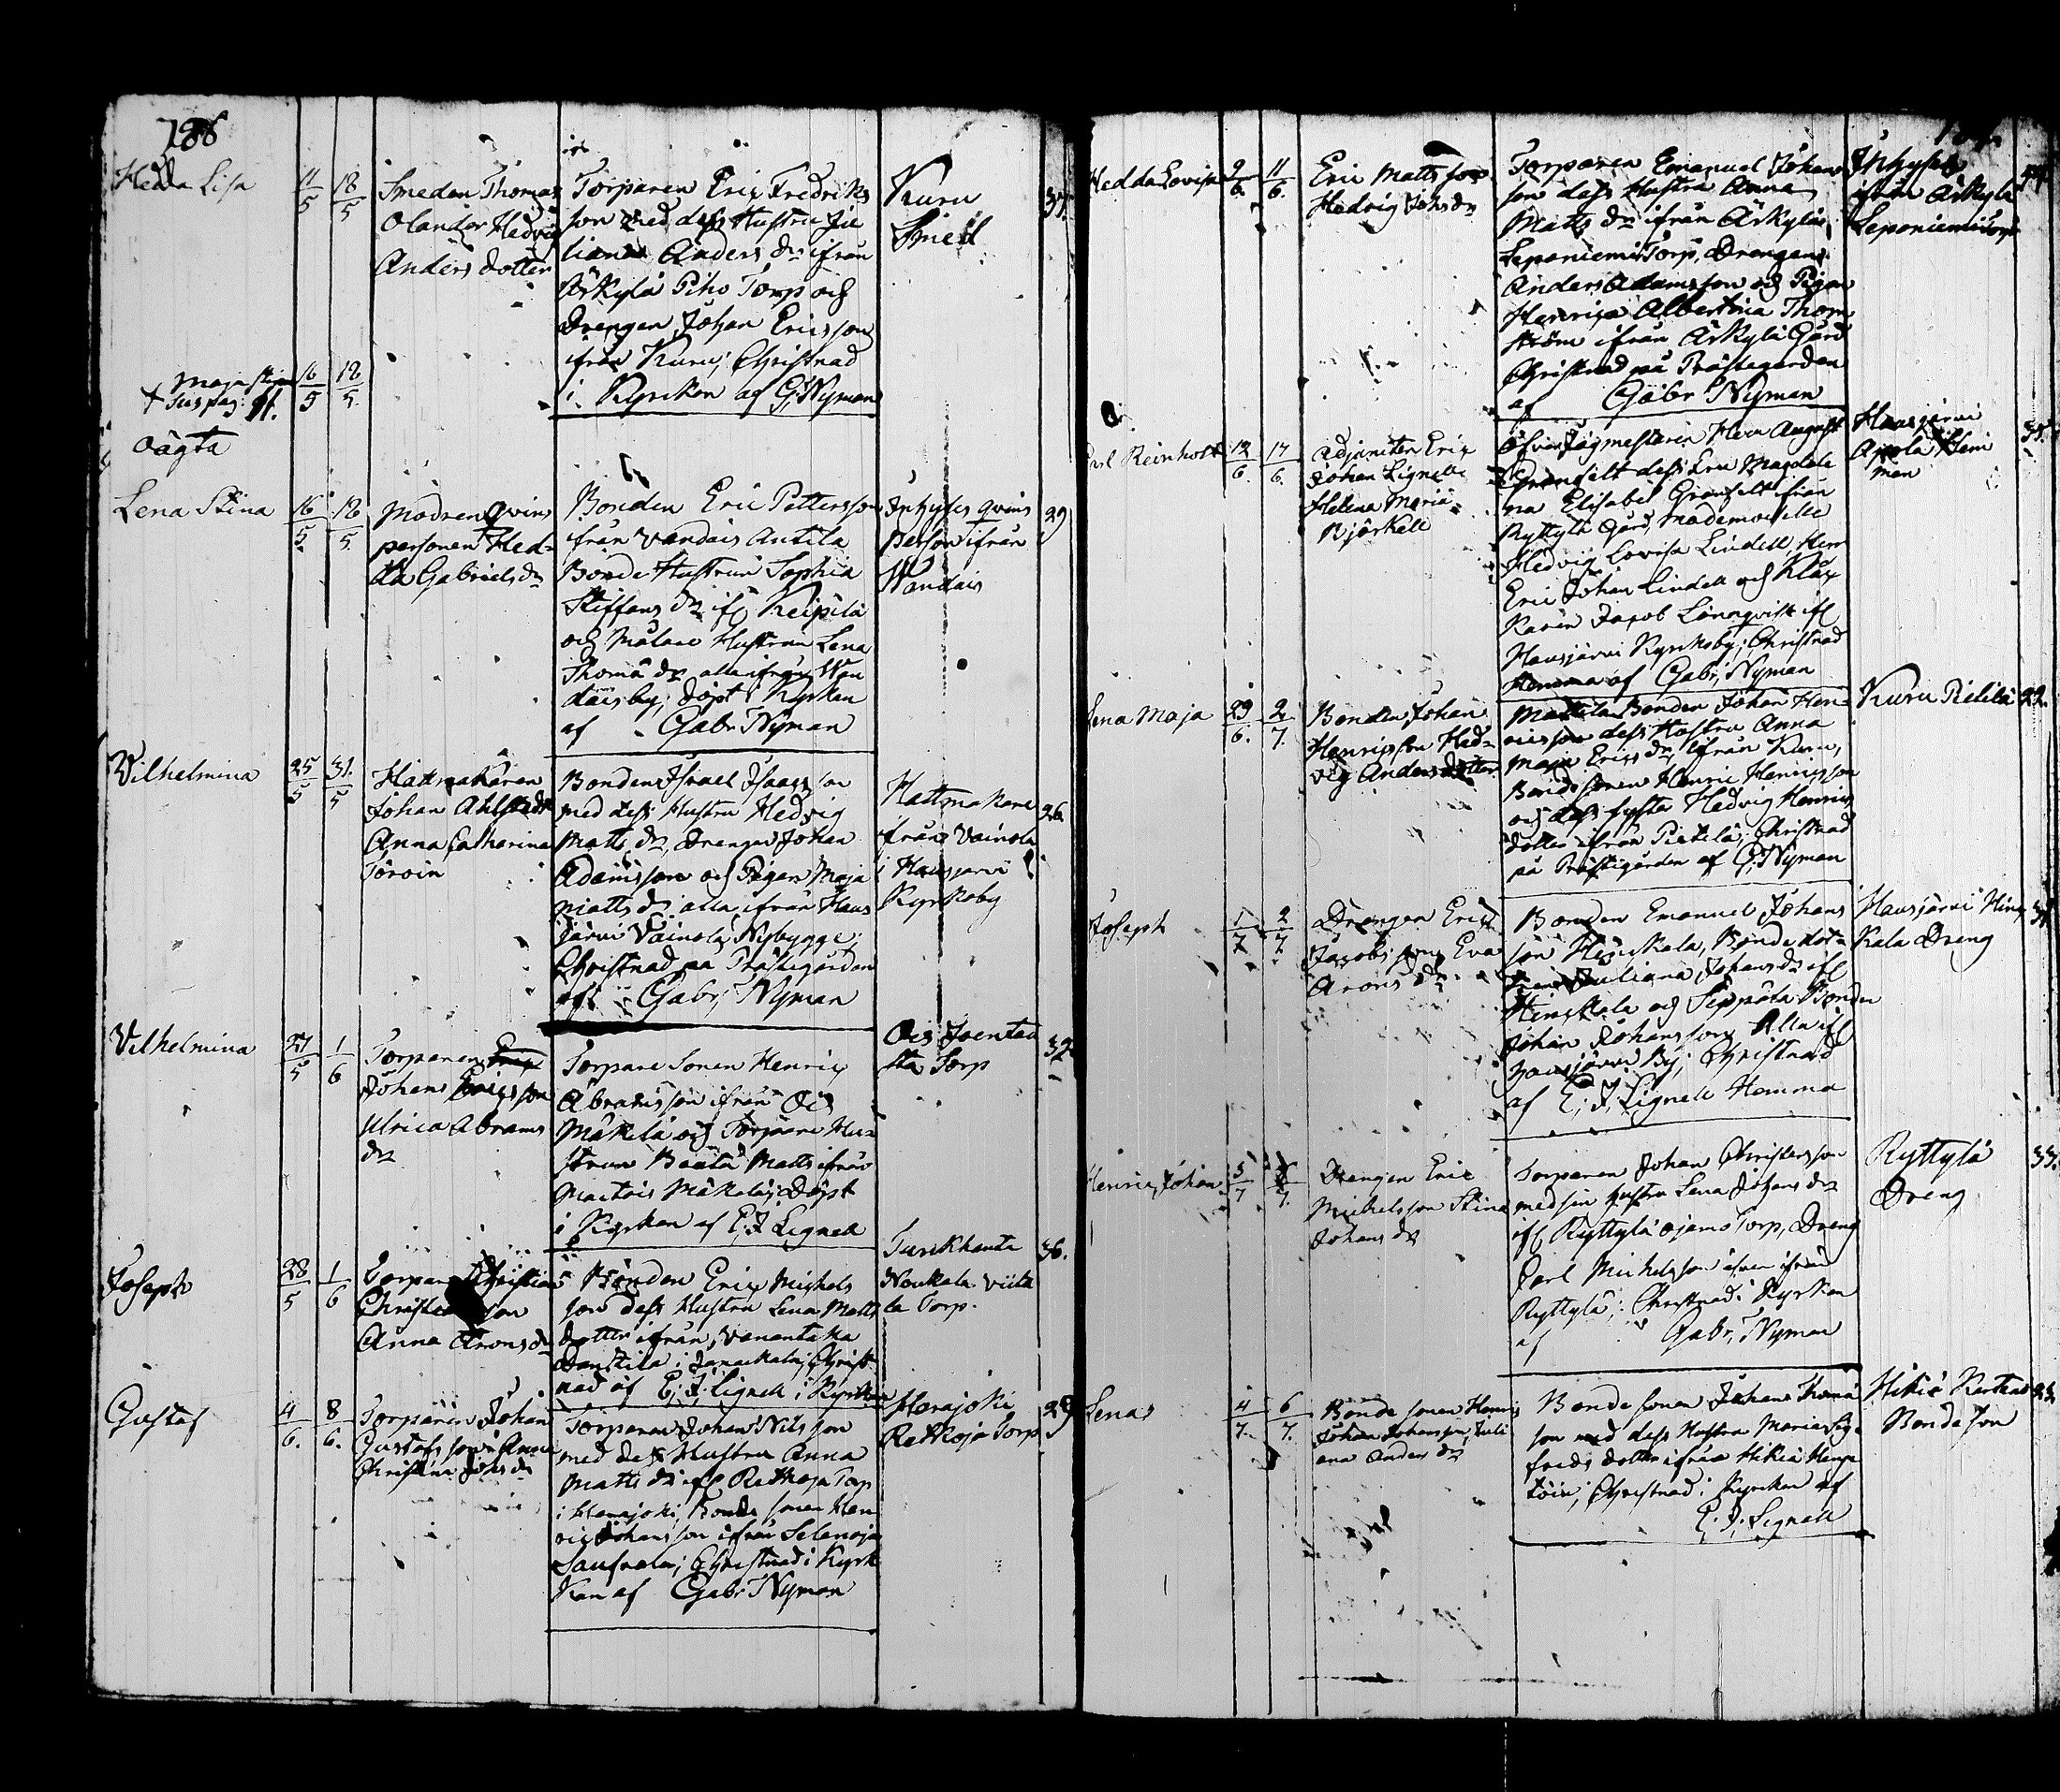 188
Hedda Lisa
11/5
18/5
Smeden Thomas
Olander Hedvig
Anders dotter
Torparen Eric Fredriks
son med dess Hustru Ju
liana Anders dr ifrån
Ärkylä Piho Torp och
Drengen Johan Ericsson
ifrån Kuru; Christnad
i Kyrkan af G; Nyman
Kuru
Smed
37.
Maja Stina
+ Sus pag: 91.
oägta
16/5
18/5.
Lena Stina
16/5.
18/5.
Modren Qvins
personen Hed=
da Gabriels dr
Bonden Eric Pettersson
ifrån Vandais Antila
Bonde Hustrun Sophia
Stiffans dr ifl Keipilä
och Målare Hustrun Lena
Thomæ dr alla ifrån Wan
dais by; döpt i Kyrkan
af Gabr: Nyman
Inhyses qvins
person ifrån
Wandais
29
Vilhelmina
25/5
31./5
Hattmakaren
Johan Ahlstedt
Anna Catharina
Töroin
Bonden Israel Isaacs son
med dess Hustru Hedvig
Matts dr, Drengen Johan
Adamsson och Pigan Maja
Matts dr alla ifrån Haus
järvi Vainola Nybygge;
Christnad på Prästegården
af Gabr; Nyman
Hattmakare
ifrån Vainola
i Hausjärvi
Kyrkoby
26.
Vilhelmina
27/5
1/6
Torparen
Johans Ericsson
Ulrica Abrams
dr
Torpare Sonen Henric
Abramsson ifrån Ois
Mäkelä och Torpare Hu=
strun Beata Matts ifrån
Martois Mäkelä; Döpt
i Kyrkan af E; J Lignell
Ois Joentau
sta Torp
32
Joseph
28/5
1/6
Torparen Christian
Christiansson
Anna Arons dr
Bonden Eric Michels
son dess Hustru Lena Matts
dotter ifrån, Vanantaka
Danskila i Janackala; Christ
nad af E; J; Lignell i Kyrkan
Turkhauta
Noukala Viita
la Torp.
36.
Gustaf
4/6.
8/6.
Torparen Johan
Gustafs son Anna
Christina Johs dr
Torparen Johan Nils son
med dess Hustru Anna
Matts dr ifl Retkoja Torp
i Herajoki, Bonde sonen Hen
ric Johans son ifrån Selenoja
Saufvala; Christnad i Kyrk
kan af Gabr: Nyman
Herajoki
Retkoja Torp
28
Hedda Lovisa
9/6.
11/6.
Eric Matts son
Hedvig Johs dr
Torparen Emanuel Johans
son dess Hustru Anna
Matts dr ifrån Ärkylä
Leponiemi Torp, Drengen
Anders Adamsson och Pigan
Henrica Albertina Thom
ström ifrån Ärkylä Gård
Christnad på Prästegården
af Gabr Nyman
Inhyses
ifrån Ärkylä
Leponiemi Torp
Carl Reinholt
12/6.
17/6.
Adjuncten Eric
Johan Lignell
Helena Maria
Björkell
Öfver Jägmestaren Herr August
Granfelt dess Fru Magdale
na Elisabet Granfelt ifrån
Ryttylä Gård, Mademoiselle
Hedvig Lovisa Lindell, Herr
Eric Johan Lindell och Klåc
karen Jacob Lönnqvist ifl
Hausjärvi Kyrkoby; Christnad
Hemma af Gabr; Nyman
Hausjärvi
Apola Hem
man
35.
Lena Maja
29/6.
2/7.
Bonden Johan
Henricsson Hed=
vig Anders dotter
Mattila Bonden Johan Hen=
ricsson dess Hustru Anna
Maja Erics dr ifrån Kuru,
Bonde sonen Henric Henricsson
och dess syster Hedvig Henrics
dotter ifrån Pietilä; Christnad
på Prästegården af G; Nyman
Kuru Pietilä
22.
Joseph
1/7
2/7
Drengen Eric
Jacobs son Eva
Arons dr
Bonden Emanuel Johans
son Hinckala, Bonde dot=
tren Juliana Johans dr ifl
Hinckala och Seppälä Bonden
Johan Johansson Alla ifl
Hausjärvi By; Christnad
af E; J; Lignell Hemma
Hausjärvi Hinc
kala Dreng
Henric Johan
5/7
Drengen Eric
Michelsson Stina
Johans dr
Torparen Johan Christersson
med sin hustru Lena Johans dr
ifl Ryttylä ojamo Torp, Dreng
Carl Michelsson äfven ifrån
Ryttylä; Christnad i Kyrkan
af Gabr; Nyman
Ryttylä
Dreng
33.
Lena
4/7.
6/7.
Bonde sonen Henric
Johan Johansson, Juli
ana Anders dr
Bonde sonen Johans Thomæ
son med dess Hustru Maria Sig=
frids dotter ifrån Hikiä
töin; Christnad i Kyrkan af
E; J; Lignell
Hikiä
Bonde son